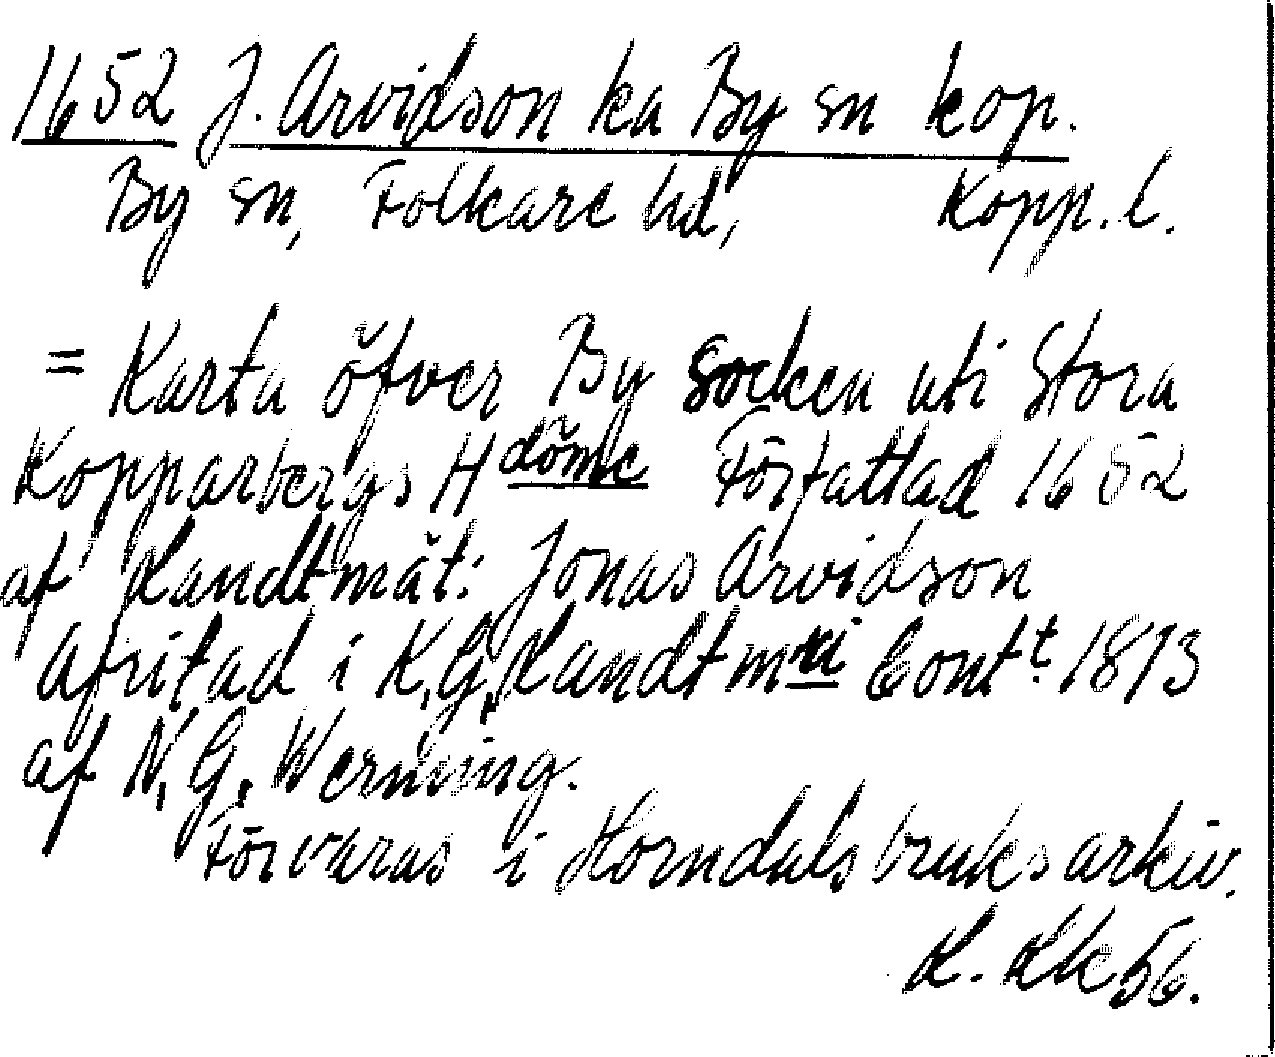 1652 J. Arvidson ka By sn kop.
By sn, Folkare hd, Kopp. l.
= Karta öfver By Socken uti Stora
Kopparbergs Hdöme Författad 1652
af Landtmät: Jonas Arvidson
Afritad i K.G. Landtmri Contt 1813
af N. G. Werming.
Förvaras i Horndals bruks arkiv.
L. Lk 56.